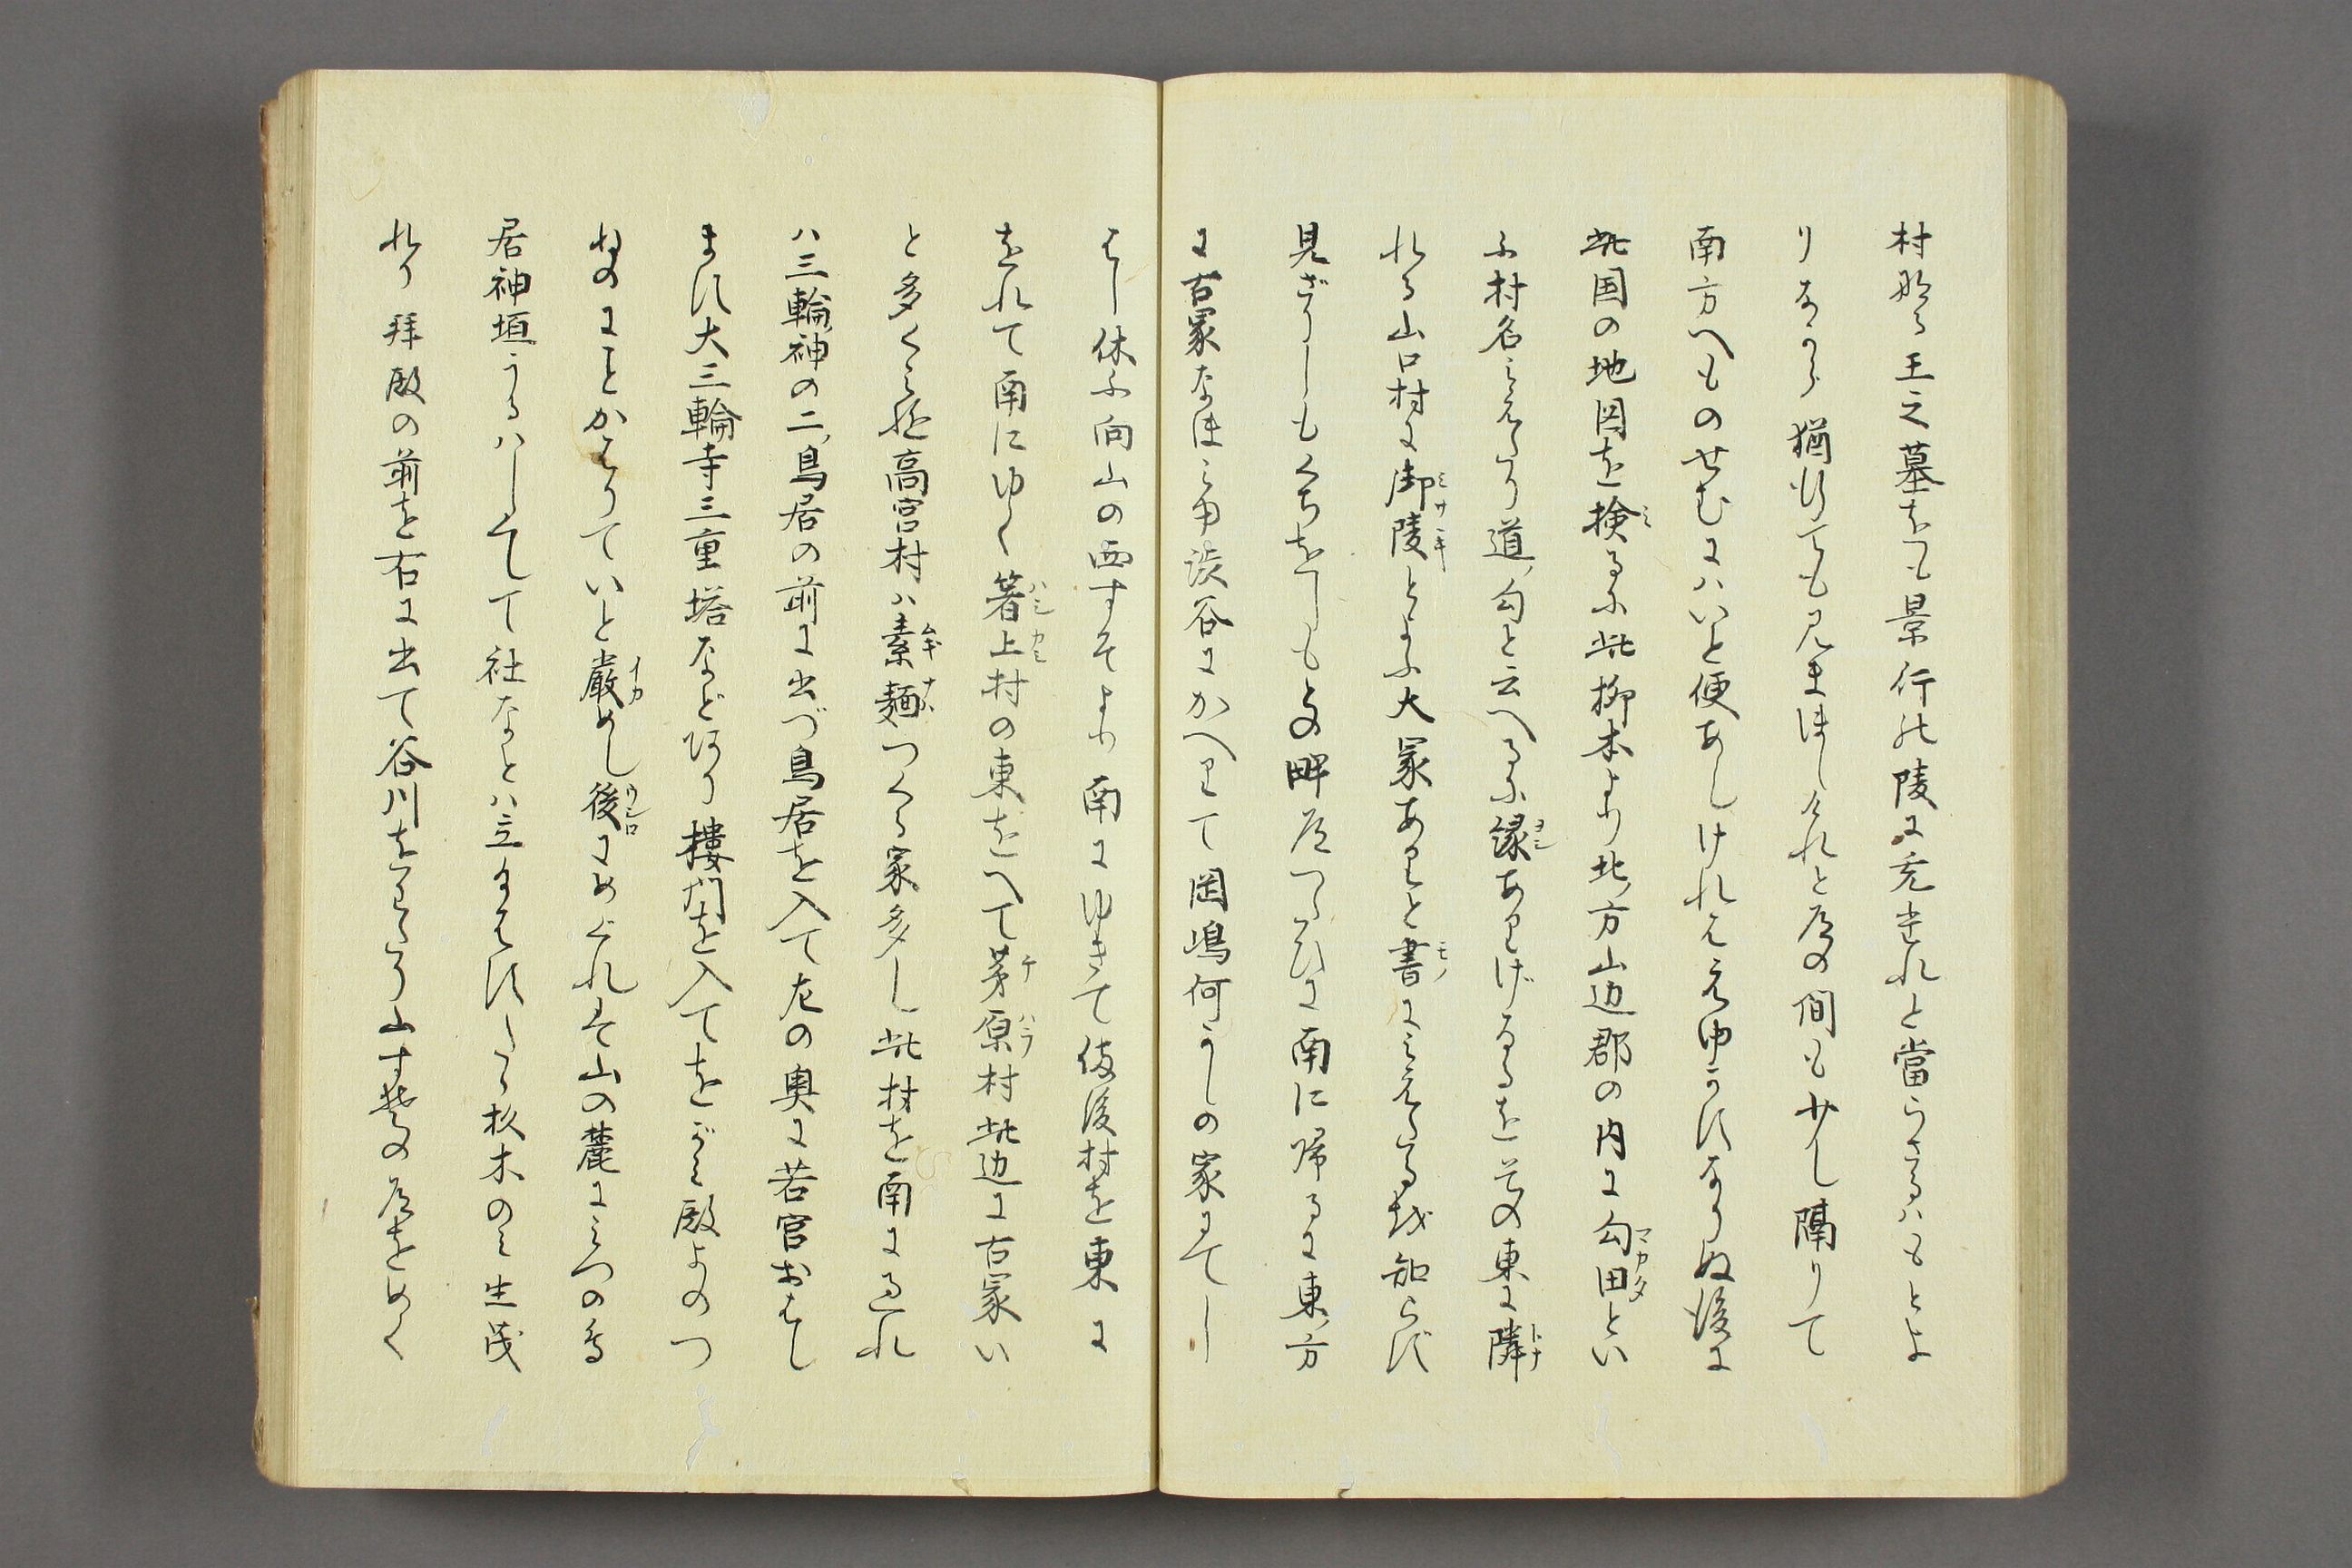 村なる王之墓をも景行の陵に充まれと當らさるハもとよ
りなから猶行ても見まほしけれと道の間も少し隔りて
南方へものせむにハいと便あしけれはえゆかすなりぬ後に
此国の地図を検るに此柳本より北方山辺郡の内に勾田とい
ふ村名みえたり道勾と云へるに縁ありげなるを其の東に隣
れる山口村に御陵とよふ大冢ありと書にみえたる故知らず
見ざりしもくちをしもとの畔道つたひに南に帰るに東方
に古冢なほみゆ渋谷にかへりて岡嶋何かしの家にてし
はし休ふ向山の西すそより南にゆきて備後村を東に
をれて南にゆく箸上村の東をへて茅原村此辺に古冢い
と多くみゆ高宮村ハ素麺つくる家多し此村を南に通れ
ハ三輪神の二鳥居の前に出づ鳥居を入て左の奥に若宮おはし
ます大三輪寺三重塔などあり樓門を入てをがみ殿よのつ
ねのにことかはりていと嚴めし後にめぐれは山の麓にみつの鳥
居神垣うるハしくして社なとハ立まはすたゝ杉木のミ生茂
れり拜殿の前を右に出て谷川をわたり山すその道をめく